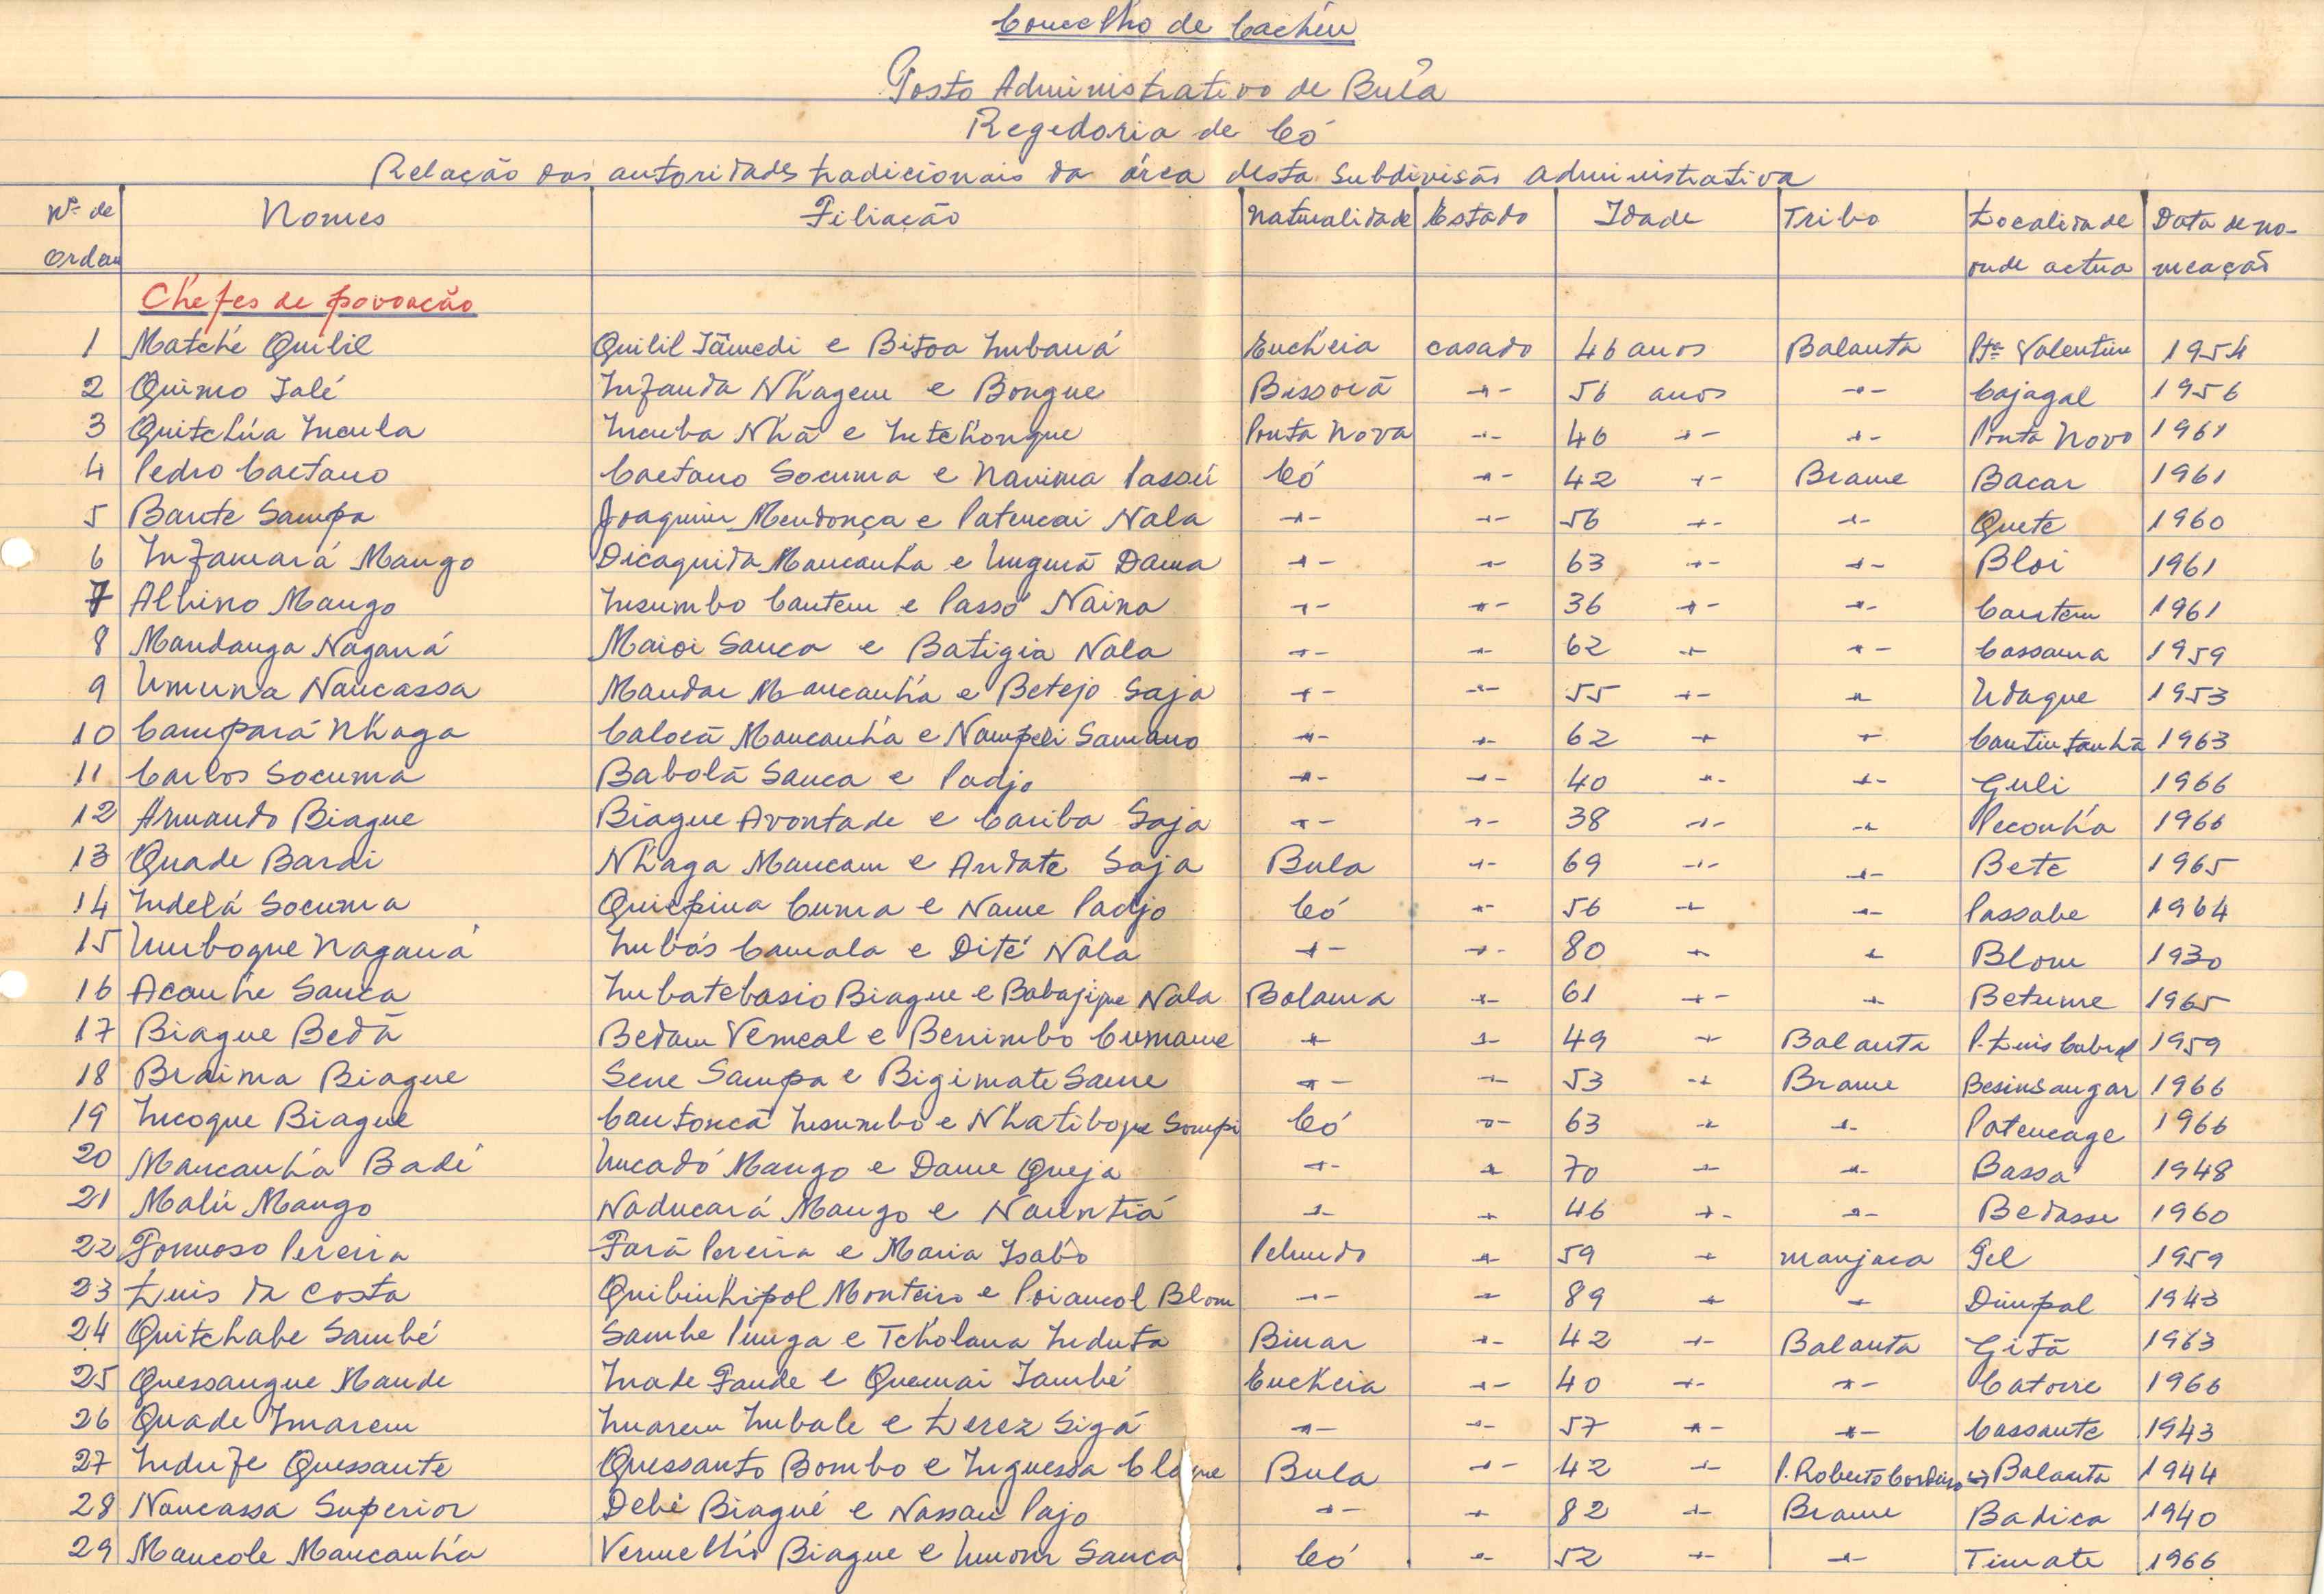 Concelho de Cachéu
Posto Administrativo de Bula
Regedoria de Có
Relação das autoridades tradicionais da área desta subdivisão administrativa
Nº de Ordem Nomes Filiação Naturalidade Estado Idade Tribo Localidade onde actua Data de nomeação
Chefes de povoação
1 Matché Quilil Quilil Tâmedi e Bitoa Imbaná Encheia casado 46 anos Balanta Pta Valentim 1954
2 Quimo Ialé Infanda N'hagem e Bongue Bissorã -"- 56 anos -"- Cajagal 1956
3 Quitchúa Incula Incuba Nhã e Intchongue Ponta Nova -"- 46 -"- -"- Ponta Novo 1961
4 Pedro Caetano Caetano Socuma e Navima Passú Có -"- 42 -"- Brame Bacar 1961
5 Bante Sampa Joaquim Mendonça e Patencai Nala -"- -"- 56 -"- -"- Quete 1960
6 Infamará Mango Dicaquida Mancanha e Ungurã Dama -"- -"- 63 -"- -"- Bloi 1961
7 Albino Mango Insumbo Cantem e Passó Naina -"- -"- 36 -"- -"- Cantem 1961
8 Mandanga Naganá Maioi Sanca e Batigia Nala -"- -"- 62 -"- -"- Cassama 1959
9 Umuna Nancassa Mandar Mancanha e Betejo Saja -"- -"- 55 -"- -"- Udaque 1953
10 Campará Nhaga Calocã Mancanha e Nampeli Samano -"- -"- 62 -"- -"- Cantintanhã 1963
11 Carlos Socuma Babolã Sanca e Padjo -"- -"- 40 -"- -"- Guli 1966
12 Armando Biague Biague Avontade e Cariba Saja -"- -"- 38 -"- -"- Peconha 1966
13 Quade Bardi Nhaga Mancam e Andate Saja Bula -"- 69 -"- -"- Bete 1965
14 Indelá Socuma Quiepina Cuma e Name Padjo Có -"- 56 -"- -"- Passabe 1964
15 Umboque Naganá Imbós Camala e Dité Nala -"- -"- 80 -"- -"- Blom 1930
16 Acanhe Sanca Imbatebasio Biague e Babajique Nala Bolama -"- 61 -"- -"- Betume 1965
17 Biague Bedã Bedam Vemcal e Benimbo Cumame -"- -"- 49 -"- Balanta P. Luis Cabral 1959
18 Braima Biague Sene Sampa e Bigimate Same -"- -"- 53 -"- Brame Besinsangar 1966
19 Incoque Biague Cantoncã Insumbo e Nhatiboque Sompi Có -"- 63 -"- -"- Patencage 1966
20 Mancanha Badé Uncadó Mango e Dame Queja -"- -"- 70 -"- -"- Bassá 1948
21 Malú Mango Naducará Mango e Nauntiá -"- -"- 46 -"- -"- Bedasse 1960
22 Formoso Pereira Farã Pereira e Maria Isabô Pelundo -"- 59 -"- manjaca Gel 1959
23 Luis da Costa Quibinhipol Monteiro e Poiancol Blom -"- -"- 89 -"- -"- Dimpal 1943
24 Quitchabe Sambé Sambe Punga e Tcholana Induta Binar -"- 42 -"- Balanta Gitã 1963
25 Quessangue Nande Inade Fande e Quemai També Encheia -"- 40 -"- -"- Catorre 1966
26 Quade Imarem Imarem Imbale e Lerez Sigã -"- -"- 57 -"- -"- Cassante 1943
27 Indufe Quessante Quessanto Bombo e Inguessa Bula -"- 42 -"- P. Roberto Cordeiro Balanta 1944
28 Nancassa Superior Debé Biagué e Nassau Pajo -"- -"- 82 -"- Brame Badica 1940
29 Mancole Mancanha Vermelho Biague e Umom Sanca Có -"- 52 -"- -"- Timate 1966